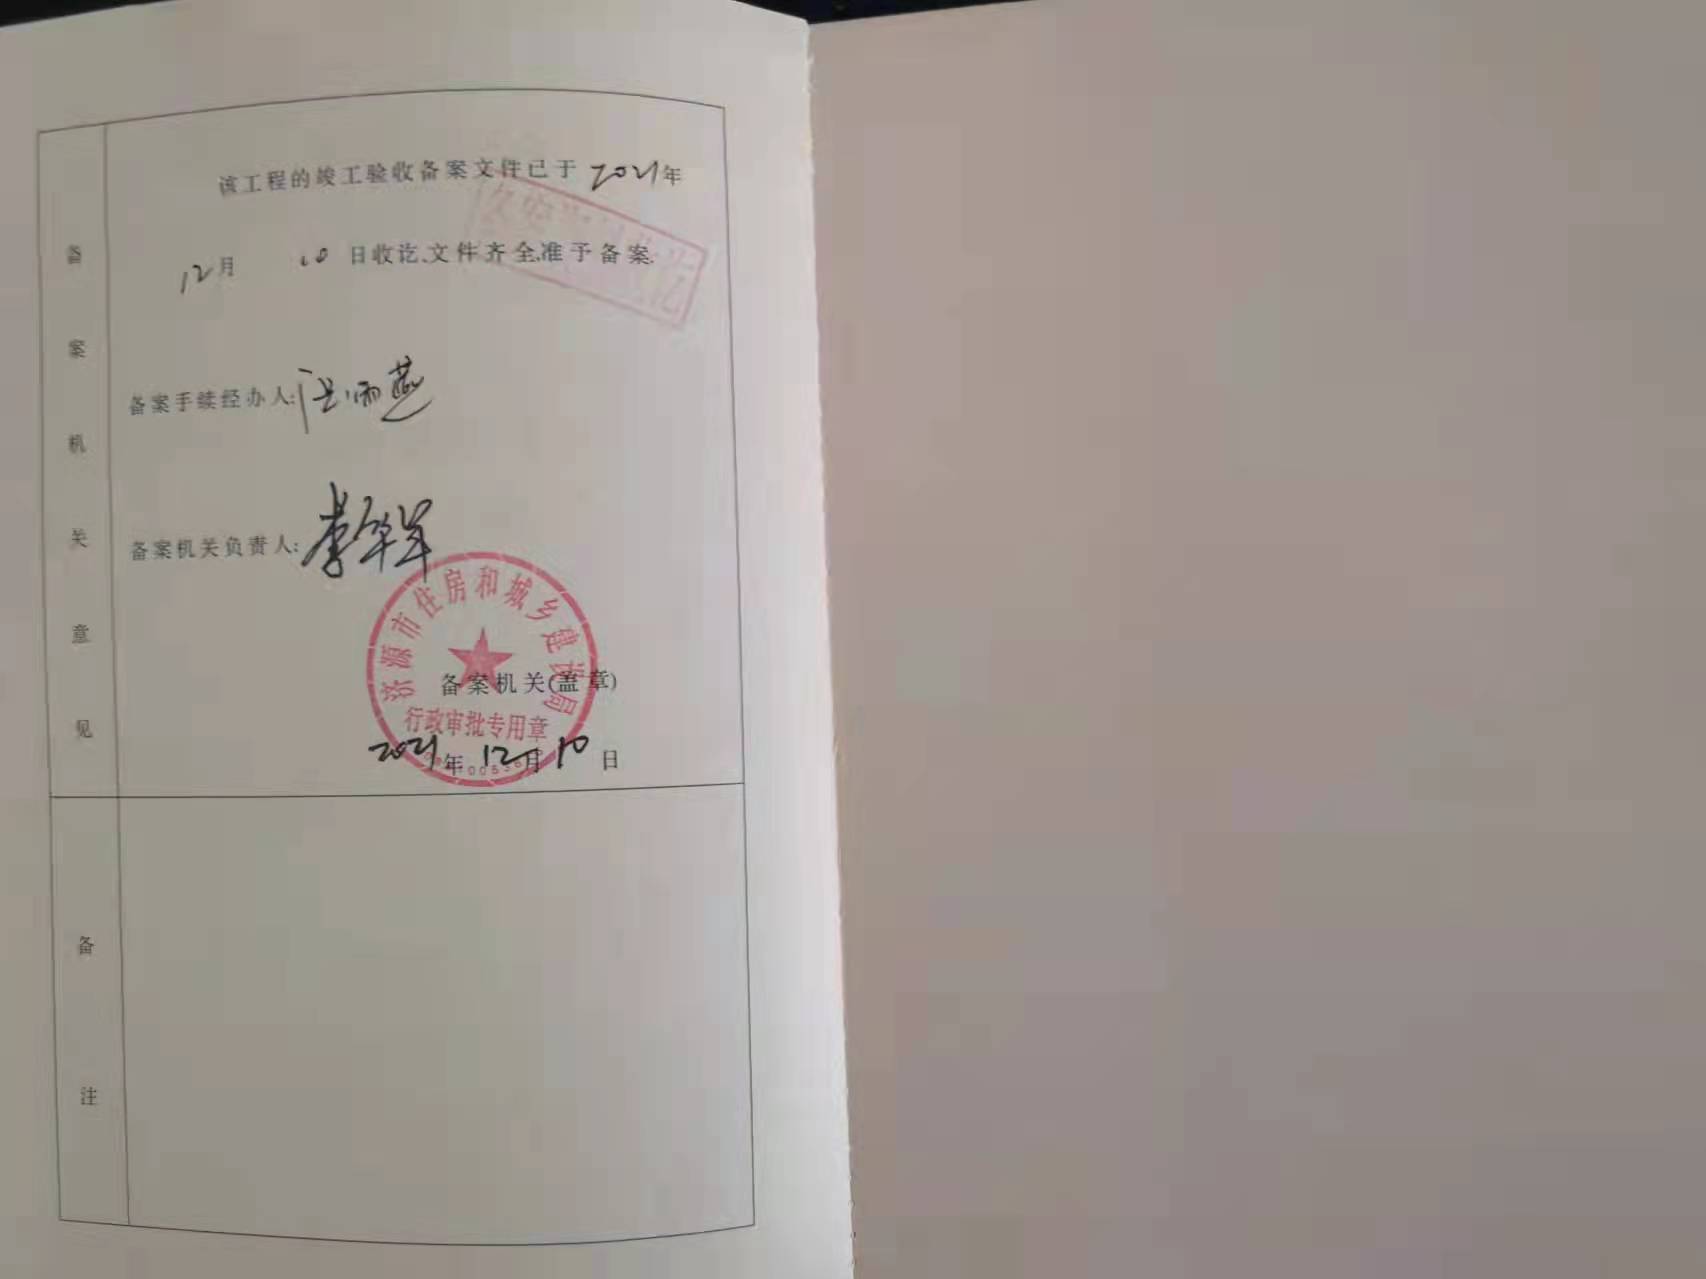 备案机关意见
该工程的竣工验收备案文件已于 2021年
12月 10 日收讫,文件齐全,准予备案.
备案手续经办人:
备案机关负责人:
济源市住房和城乡建设局
备案机关(盖章)
行政审批专用章
2021年 12月 10 日
备注